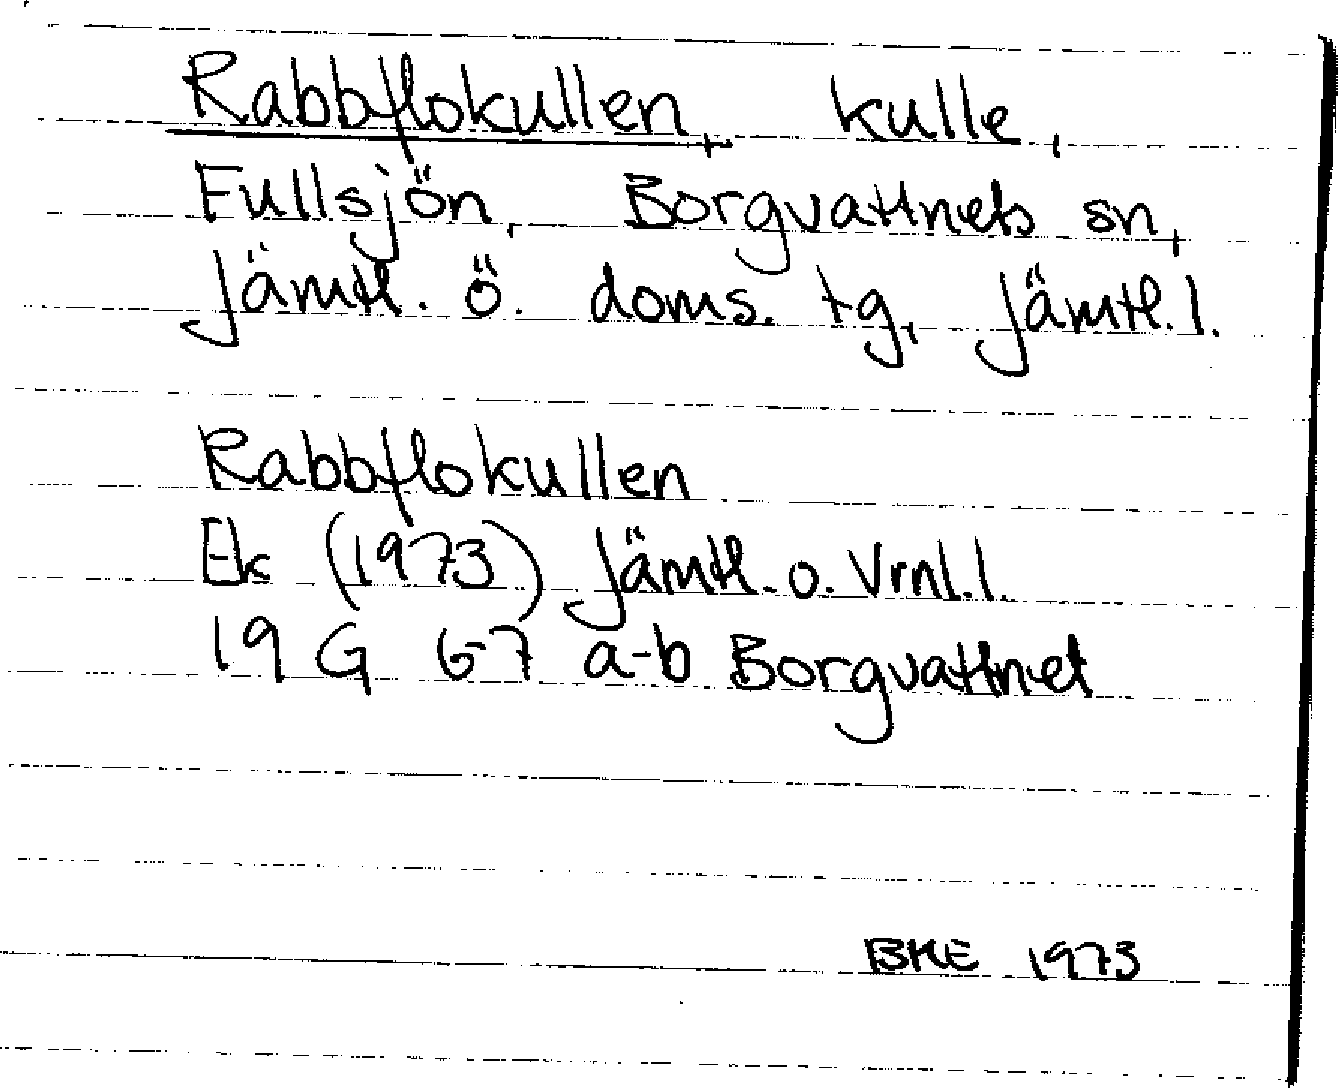 Rabbflokullen, kulle,
Fullsjön, Borgvattnets sn,
Jämtl. ö. doms. tg, Jämtl. l.
Rabbflokullen
Ek (1973) Jämtl. o. Vrnl. l.
19 G 6-7 a-b Borgvattnet
BKE 1973